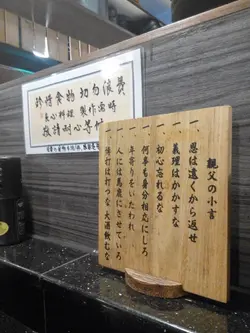 珍惜食物 切勿浪費
點心料理 製作需時
敬請耐心等候
親父の小言
一、恩は遠くから返せ
一、義理はかかすな
一、初心忘れるな
一、何事も身分相応にしろ
一、年寄りをいたわれ
一、人には馬鹿にされていろ
一、博打は打つな 大酒飲むな